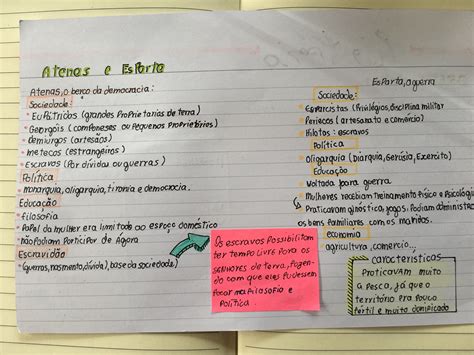 Atenas e Esparta
Atenas, o berço da democracia:
Sociedade:
• Eupátridas (grandes Proprietarios de terra)
• Georgóis (componeses ou Pequenos Proprietários)
• Demiurgos (artesãos)
• metecos (estrangeiros)
• Escravos (Por dívidas ou guerras)
Política
• monarquia, oligarquia, tirania e democracia.
Educação
• filosofia
• Papel da mulher era limitado ao espaço doméstico
• não Podiam Participar de Agora
Escravidão
• (guerras, nascimento, dívida), base da sociedade)
Os escravos Possibilitam
ter tempo livre Para os
senhores de terra, fazendo
com que eles Pudessem
focar na filosofia e
Política.
Esparta, a guerra
Sociedade:
• Esparcistas (Privilégios, disciplina militar
• Periecos (artesanato e comércio)
• Hilotas: escravos
Política
• Oligarquia (diárquia, Gerúsia, Exército)
Educação
• Voltada para guerra
• Mulheres recebiam treinamento físico e Psicológi
Praticavam ginástica, jogos. Podiam administrar
os bens familiares com os maridos.
economia
agricultura, comercio...
Características
Praticavam muito
a Pesca, já que o
território era Pouco
fértil e muito danificado